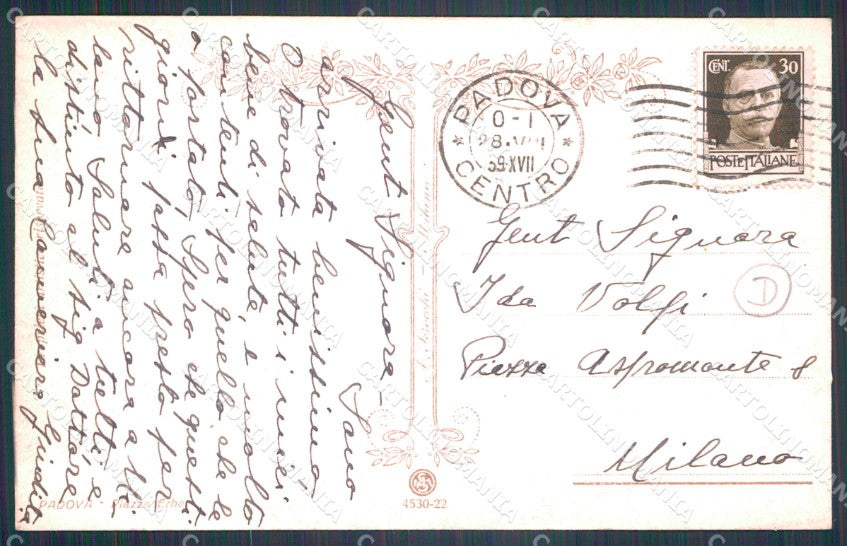 Gent Signora –
Sono
arrivata benissimo
O trovato tutti i miei
bene di salute, e molto
contenti per quello che le
o portato, Spero che questi
giorni passa presto per
rittornare ancora a Mi
lano Saluti a tutti, e
distinto al Sig Dattore
la sua Cameriera Giudita
PADOVA - Piazza Erbe
4530-22
PADOVA
0-1
28.VIII
39.XVII
CENTRO
CENT. 30
POSTE ITALIANE
Gent Signora
Ida Volpi
D
Piazza Aspromonte 8
Milano
CARTOLINOMANIA